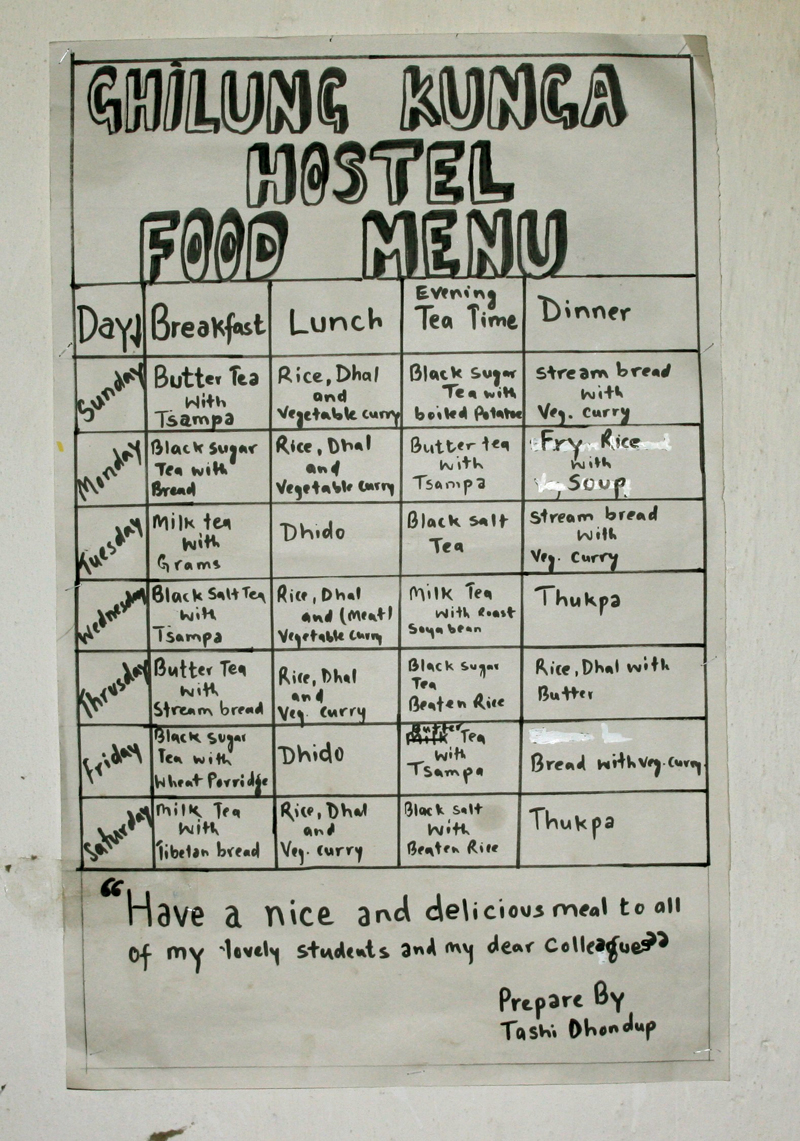 GHILUNG KUNGA
HOSTEL
FOOD MENU
Day Breakfast Lunch Evening Tea Time Dinner
Sunday
Butter Tea
With
Tsampa
Rice, Dhal
and
Vegetable curry
Black Sugar
Tea with
boiled Potatoe
Stream bread
with
Veg. Curry
Monday
Black Sugar
Tea with
Bread
Rice, Dhal
and
Vegetable Curry
Butter tea
with
Tsampa
Fry Rice
with
Soup
Tuesday
Milk tea
with
Grams
Dhido
Black Salt
Tea
Stream bread
With
Veg. Curry
Wednesday
Black Salt Tea
with
Tsampa
Rice, Dhal
and (Meat)
Vegetable Curry
Milk Tea
With Roast
Soyabean
Thukpa
Thrusday
Butter Tea
with
Stream bread
Rice, Dhal
and
Veg. Curry
Black Sugar
Tea
Beaten Rice
Rice, Dhal with
Butter
Friday
Black Sugar
Tea with
Wheat Porridge
Dhido
Butter
Milk Tea
with
Tsampa
Bread with veg. curry.
Saturday
Milk Tea
With
Tibetan bread
Rice, Dhal
and
Veg. Curry
Black Salt
With
Beaten Rice
Thukpa
“Have a nice and delicious meal to all
of my lovely students and my dear Colleagues”
Prepare By
Tashi Dhondup